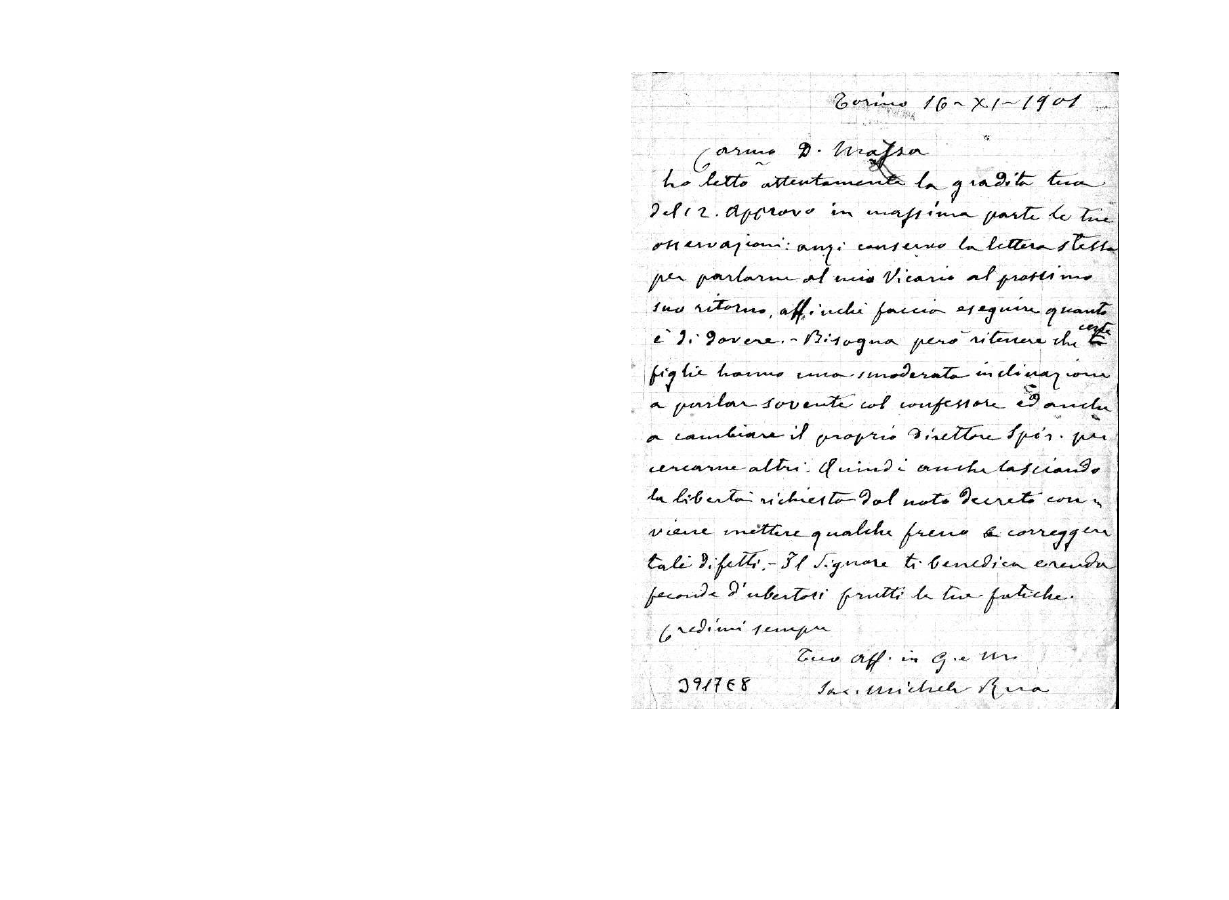 Torino 16-XI-1901
Carmo D. Massa
ho letto attentamente la gradita tua
del 12. Approvo in massima parte le tue
osservazioni: anzi conservo la lettera stessa
per parlarne al mio Vicario al prossimo
suo ritorno, affinché faccia eseguire quanto
è di dovere. - Bisogna però ritenere che certe
figlie hanno una smoderata inclinazione
a parlar sovente col confessore ed anche
a cambiare il proprio Direttore Spir. per
cercarne altri. Quindi anche lasciando
la libertà richiesta dal noto decreto con-
viene mettere qualche freno e correggere
tali difetti. - Il Signore ti benedica e renda
feconde d'ubertosi frutti le tue fatiche.
Credimi sempre
Tuo aff. in G. e M.
Sac. Michele Rua
3917E8